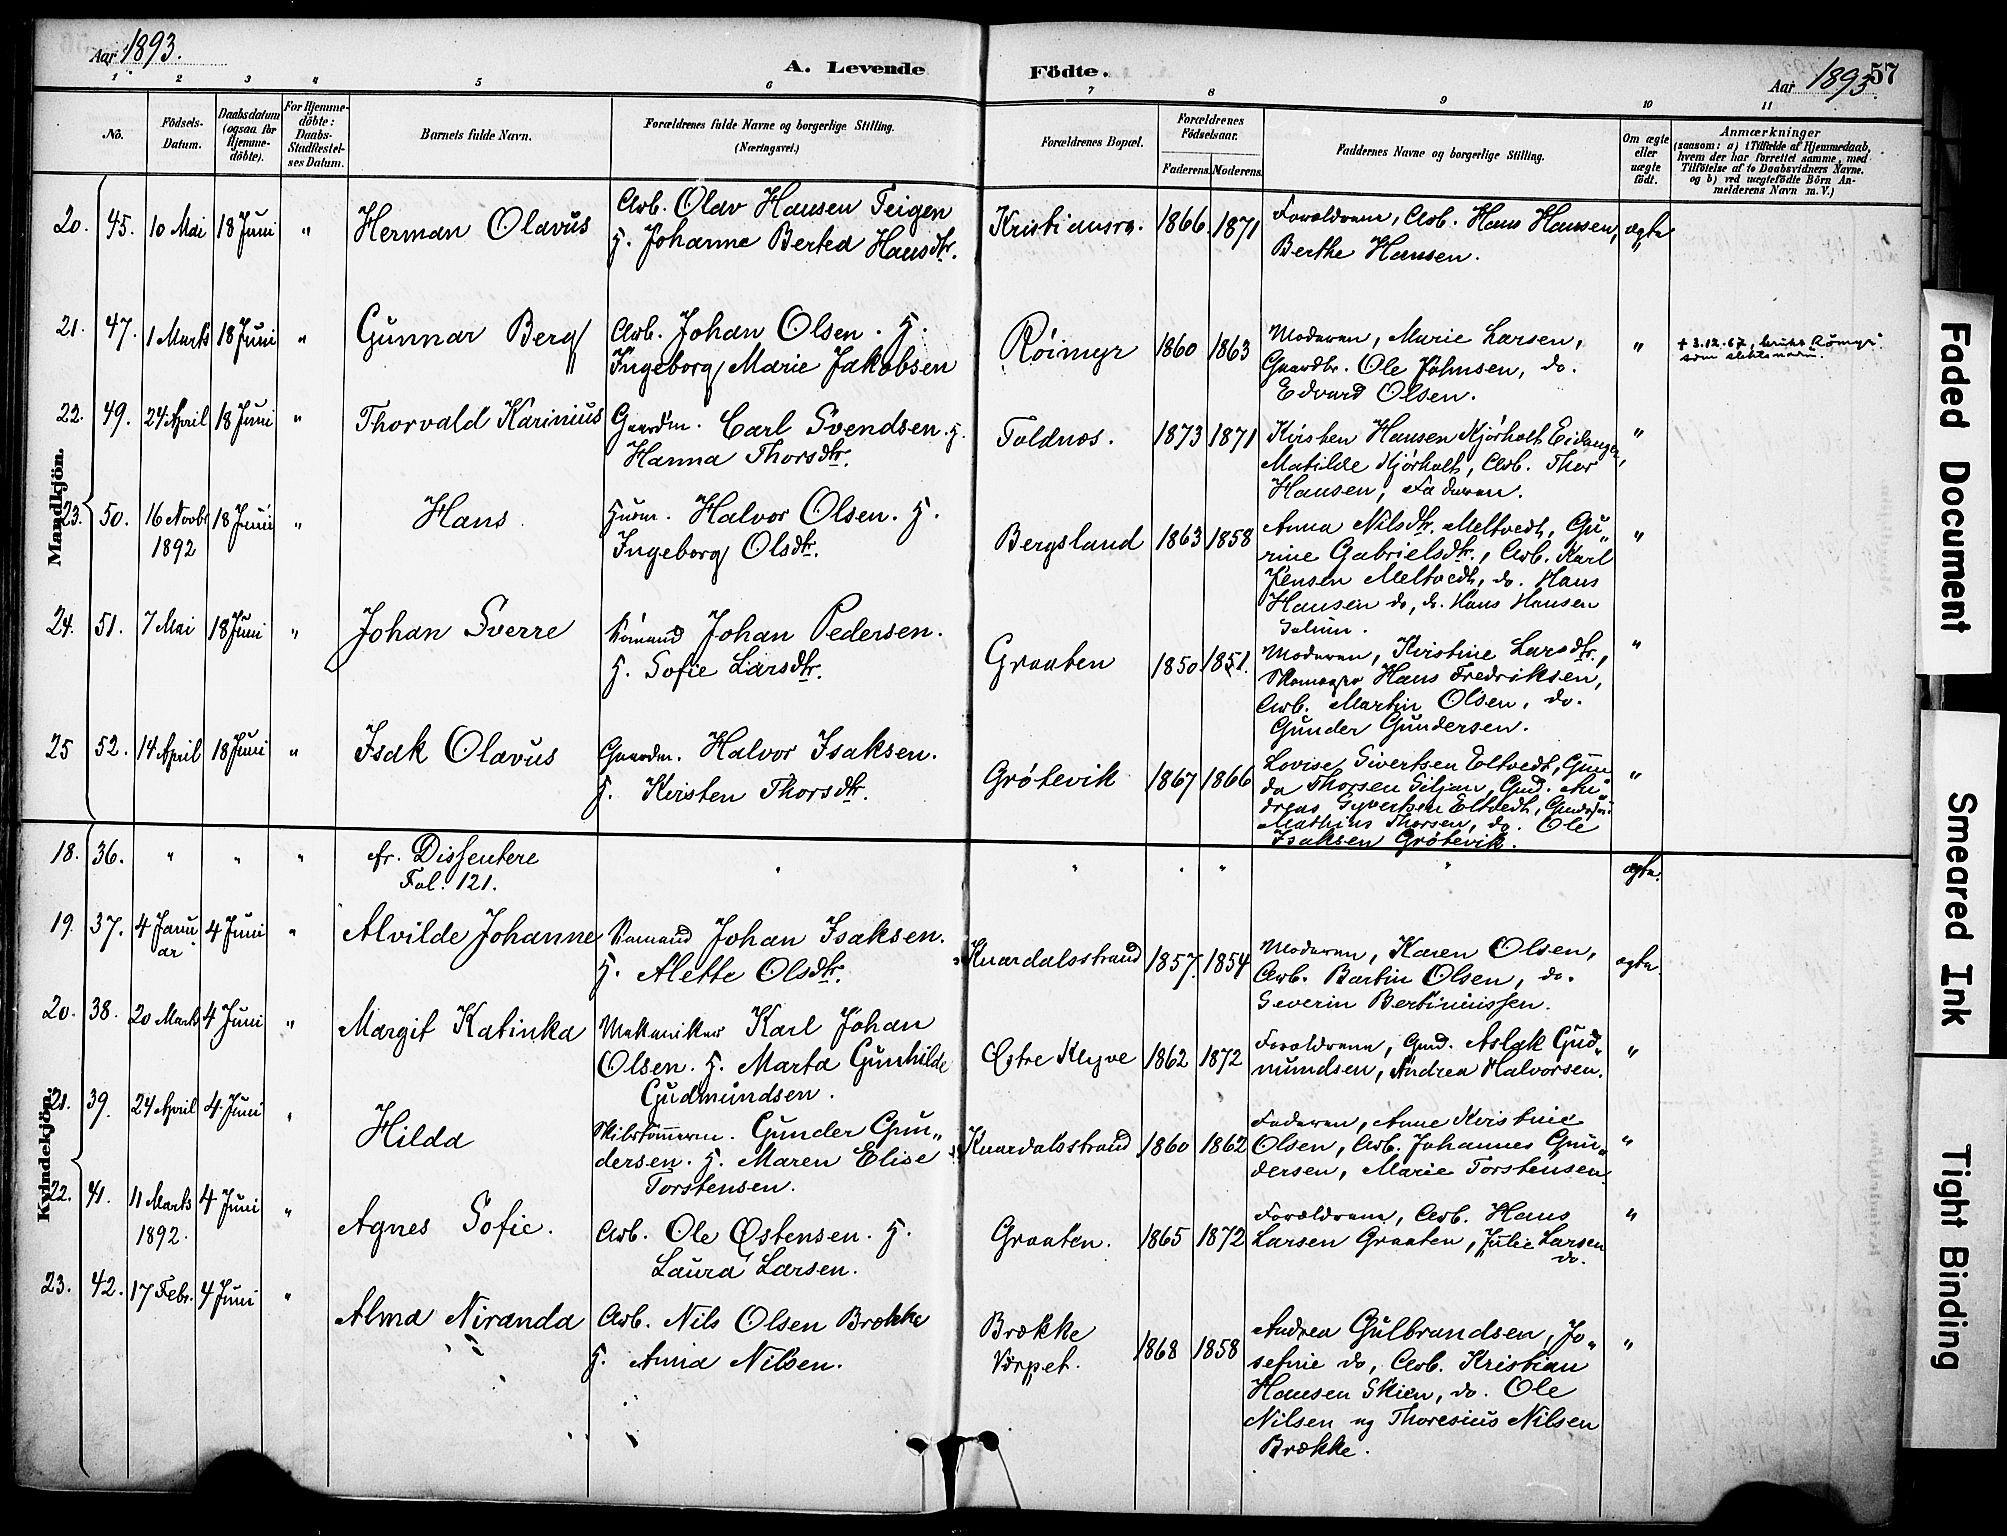 Aar 1893.
A. Levende Födte.
Aar 1893.
57
1 2 3 4 5 6 7 8 9 10 11
No.
Födsels-Datum.
Daabsdatum (ogsaa for Hjemme-döbte).
For Hjemme-döbte: Daabs-Stadfæstel-ses Datum.
Barnets fulde Navn.
Forældrenes fulde Navne og borgerlige Stilling. (Næringsvei.)
Forældrenes Bopæl.
Forældrenes Födselsaar.
Faderens. Moderens.
Faddernes Navne og borgerlige Stilling.
Om ægte eller uægte födt.
Anmærkninger
(saasom: a) i Tilfælde af Hjemmedaab, hvem der har forrettet samme, med Tilföielse af to Daabsvidners Navne, og b) ved uægtefödte Börn An-melderens Navn m. V.)
Mandkjön.
20. 45. 10 Mai 18 Juni " Herman Olavus
Arb. Olav Hansen Teigen
H. Johanne Bertea Hansdtr.
Kristiansrø. 1866. 1871
Forældrene, Arb. Hans Hansen,
Berthe Hansen.
ægte
21. 47. 1 Marts 18 Juni " Gunnar Berg
Arb. Johan Olsen. H.
Ingeborg Marie Jakobsen
Röimyr 1860 1863
Moderen, Marie Larsen,
Gaardbr. Ole Johnsen, do.
Edvard Olsen.
"
+ 3.12.67, brukt Römyr
som slektsnavn.
22. 49. 24 April 18 Juni " Thorvald Karinius
Gaardm. Carl Svendsen. H.
Hanna Thorsdtr.
Toldnæs. 1873 1871
Kirsten Hansen Kjørholt Eidanger,
Matilde Kjørholt, Arb. Thor
Hansen, Faderen.
"
23. 50. 16 Novbr 1892 18 Juni " Hans
Husm. Halvor Olsen. H.
Ingeborg Olsdtr.
Bergsland 1863 1858
Anna Nilsdtr. Meltvedt, Gu„
rine Gabrielsdtr., Arb. Karl
Jensen Meltvedt, do. Hans
Hansen do, do. Hans Hansen
Solum.
"
24. 51. 7 Mai 18 Juni " Johan Sverre
Sømand Johan Pedersen.
H. Sofie Larsdtr.
Graaten 1850 1851.
Moderen, Kristine Larsdtr.,
Skomager Hans Fredriksen,
Arb. Martin Olsen, do.
Gunder Gundersen.
"
25 52. 14 April 18 Juni " Isak Olavus
Gaardm. Halvor Isaksen.
H. Kirsten Thorsdtr.
Grøtevik 1867 1866
Lovise Sivertsen Eltvedt, Gun„
da Thorsen Siljan, Gmd. An„
dreas Syvertsen Eltvedt,
Mathias Thorsen, do. Ole
Isaksen Grøtevik.
"
Kvindekjön.
18. 36. " " " fr. Dissentere
Fol. 121.
" " " " " ægte.
19. 37. 4 Janu ar 4 Juni " Alvilde Johanne
Sømand Johan Isaksen.
H. Alette Olsdtr.
Knardalsstrand 1857. 1854
Moderen, Karen Olsen,
Arb. Bartin Olsen, do.
Severin Bertiniussen.
ægte.
20. 38. 20 Marts 4 Juni " Margit Katinka
Mekaniker Karl Johan
Olsen. H. Marta Gunhilde
Gudmundsen.
Østre Klyve 1862 1872
Forældrene, Gmd. Aslak Gud„
mundsen, Andrea Halvorsen.
"
21. 39. 24 April 4 Juni " Hilda
Skibstømmerm. Gunder Gun„
dersen. H. Maren Elise
Torstensen.
Knardalsstrand 1860 1862
Faderen, Anne Kristine
Olsen, Arb. Johannes Gun„
dersen, Marie Torstensen.
"
22. 41. 11 Marts 1892. 4 Juni " Agnes Sofie.
Arb. Ole Østensen. H.
Laura Larsen.
Graaten. 1865 1872
Forældrene, Arb. Hans
Larsen Graaten, Julie Larsen
do.
"
23. 42. 17 Febr. 4 Juni " Alma Niranda
Arb. Nils Olsen Brække
H. Anna Nilsen.
Brække
Værpet. 1868 1858
Andrea Gulbrandsen, Jo„
sefine do, Arb. Kristian
Hansen Skien, do. Ole
Nilsen og Thoresius Nilsen
Brække.
"
Faded Document
Smeared Ink
Tight Binding